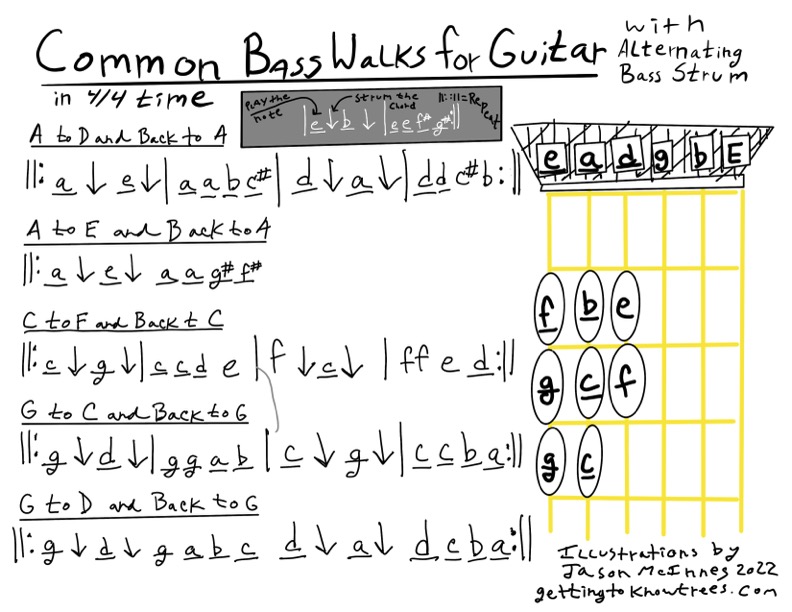 Common Bass Walks for Guitar
with
Alternating
Bass Strum
in 4/4 time
Play the note
Strum the Chord
||: :|| = Repeat
| e ↓ b ↓ | e e f# g# :||
A to D and Back to A
||: a ↓ e ↓ | a a b c# | d ↓ a ↓ | d d c# b :||
A to E and Back to A
||: a ↓ e ↓ a a g# f#
C to F and Back t C
||: c ↓ g ↓ | c c d e | f ↓ c ↓ | f f e d :||
G to C and Back to G
||: g ↓ d ↓ | g g a b | c ↓ g ↓ | c c b a :||
G to D and Back to G
||: g ↓ d ↓ g a b c d ↓ a ↓ d c b a :||
e a d g b E
f b e
g c f
g c
Illustrations by
Jason McInnes 2022
gettingtoknowtrees.com